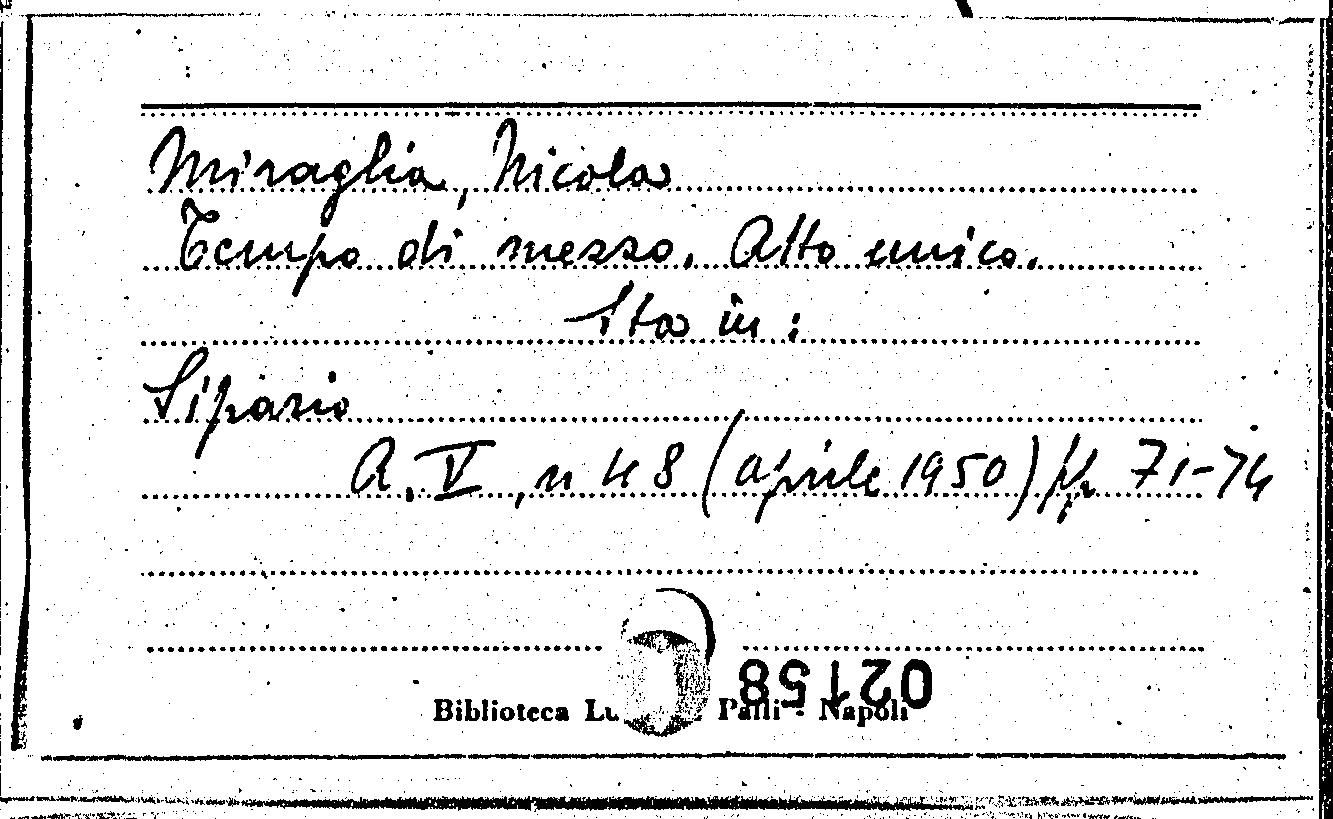 Miraglia, Nicola
Tempo di mezzo. Atto unico.
Sta in:
Sipario
A. V, n 48 (aprile 1950) pp. 71-74
02158
Biblioteca Lu Palli - Napoli